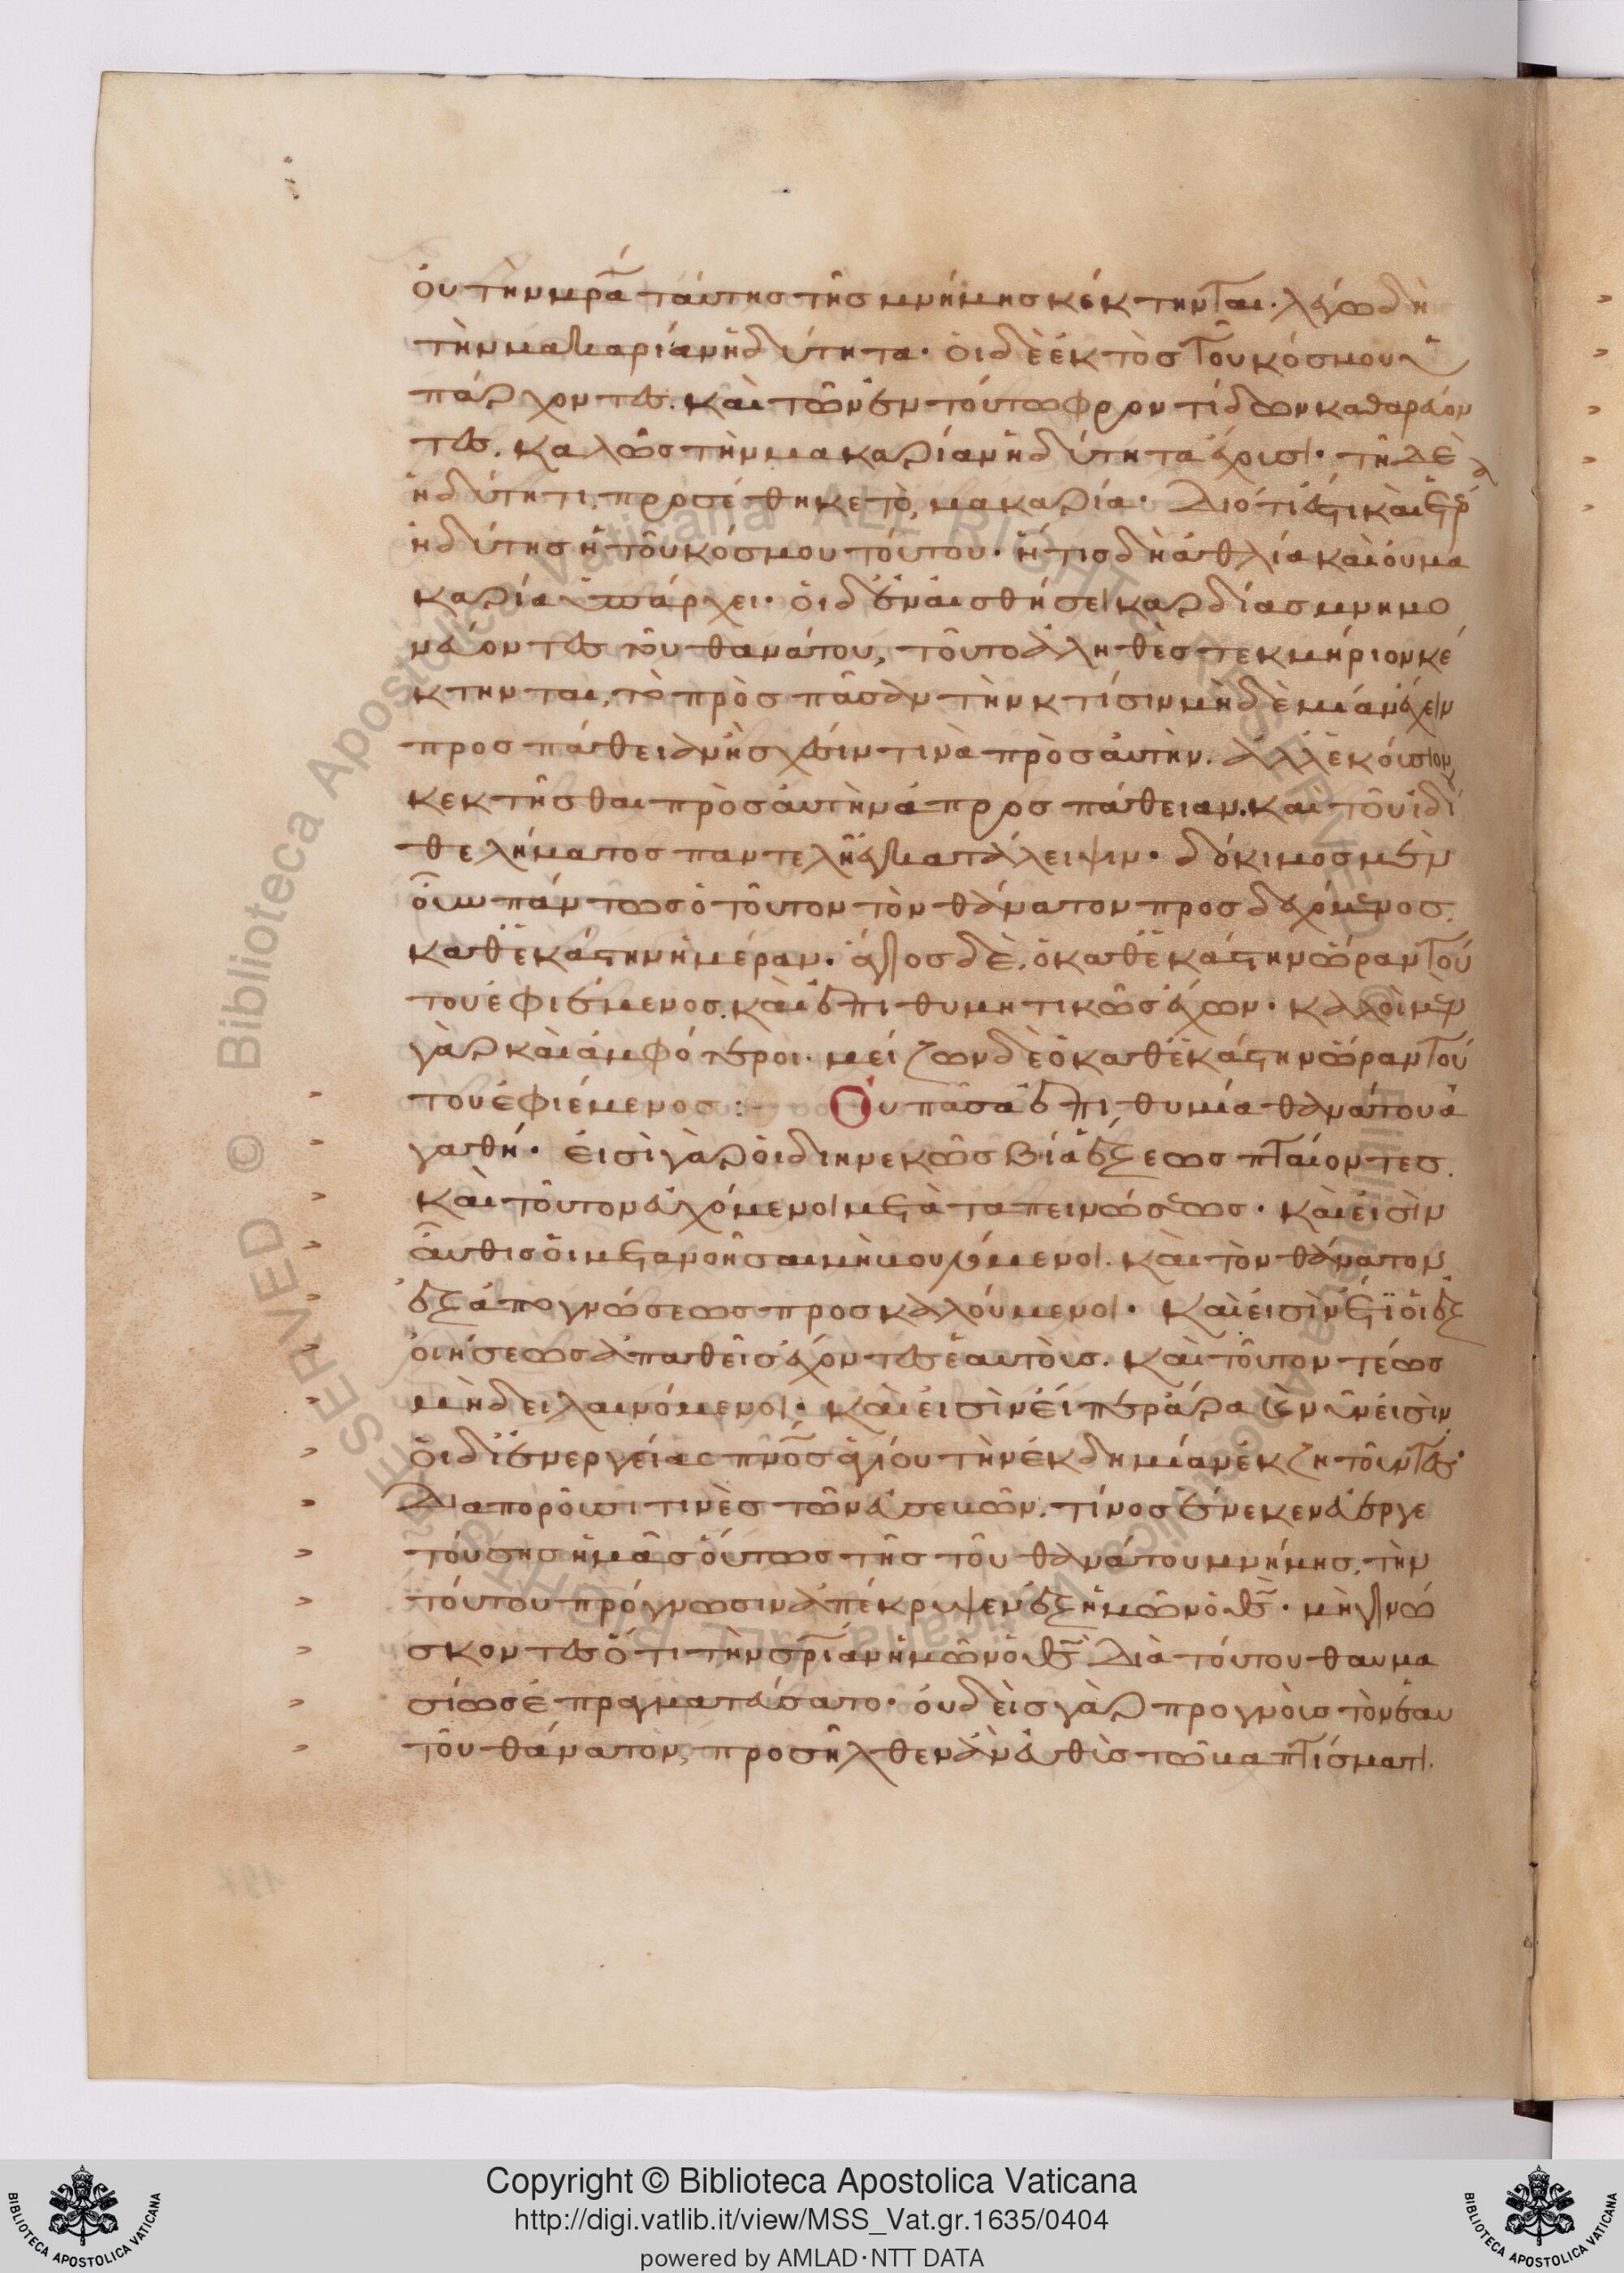 οὐ τὴν μρ̅α ταύτης τῆς μνήμης κέκτηνται· λέγω δὴ
τὴν μακαρίαν ἡδύτητα· οἱ δὲ ἐκτὸς τοῦ κόσμου ὑ
πάρχοντες. καὶ τῶν ἐν τούτω φροντίδων καθαρεύον
τες. καλῶς τὴν μακαρίαν ἡδύτητα
ἡδύτητι, προσέθηκε τὸ, μακαρία· διότι ἐστὶ καὶ ἑτέρα
ἡδύτης ἡ τοῦ κόσμου τούτου· ἥτις δὴ ἀθλία καὶ οὐ μα
καρία ὑπάρχει· οἱ δ' ἐν αἰσθήσει καρδίας μνημο
νεύοντες τοῦ θανάτου, τοῦτο ἀληθὲς τεκμήριον κέ
κτηνται, τὸ πρὸς πᾶσαν τὴν κτίσιν μηδὲ μίαν ἔχειν
προσπάθειαν ἢ σχέσιν τινὰ πρὸς αὐτήν. ἀλλ' ἑκούσιον
κεκτῆσθαι πρὸς αὐτὴν ἀπροσπάθειαν. καὶ τοῦ ἰδί
θελήματος παντελῆ ἐγκατάλειψιν· δόκιμος μὲν
οὖν πάντως ὁ τοῦτον τὸν θάνατον προσδεχόμενος
καθ' ἑκάστην ἡμέραν. ἅγιος δὲ, ὁ καθ' ἑκάστην ὥραν τού
του ἐφιέμενος. καὶ ἐπιθυμητικῶς ἔχων· καλοὶ μὲν
γὰρ καὶ ἀμφότεροι. μείζων δὲ ὁ καθ' ἑκάστην ὥραν τού
του ἐφιέμενος :- Οὐ πᾶσα ἐπιθυμία θανάτου ἀ
γαθή· εἰσὶ γὰρ οἱ διηνεκῶς βία ἕξεως πταίοντες.
καὶ τοῦτον εὐχόμενοι μετὰ ταπεινώσεως· καὶ εἰσὶν
αὖθις οἱ μετανοῆσαι μὴ βουλόμενοι. καὶ τὸν θάνατον
ἐξ ἀπογνώσεως προσκαλούμενοι· καὶ εἰσὶν ἔτι οἱ ἐξ
οἰήσεως ἀπαθεῖς ἔχοντες ἑαυτοῖς. καὶ τοῦτον τέως
μὴ δειλαινόμενοι· καὶ εἰσὶν εἴπερ ἄρα ἐν νῦν εἰσὶν
οἱ δι' ἐνεργείας πνς ἁγίου τὴν ἐκδημίαν ἐκζητοῦντες·
Διαποροῦσί τινες τῶν εὐσεβῶν. τίνος ἕνεκεν εὐεργε
τούσης ἡμᾶς οὕτως τῆς τοῦ θανάτου μνήμης, τὴν
τούτου πρόγνωσιν ἀπέκρυψεν ἐξ ἡμῶν ὁ θς· μὴ γινώ
σκοντες ὅτι τὴν σρίαν ἡμῶν ὁ θς διὰ τούτου θαυμα
σίως ἐπραγματεύσατο· οὐδεὶς γὰρ προγνοὺς τὸν ἑαυ
τοῦ θάνατον, προσῆλθεν ἂν εὐθὺς τῶ βαπτίσματι.
Copyright © Biblioteca Apostolica Vaticana
http://digi.vatlib.it/view/MSS_Vat.gr.1635/0404
powered by AMLAD·NTT DATA